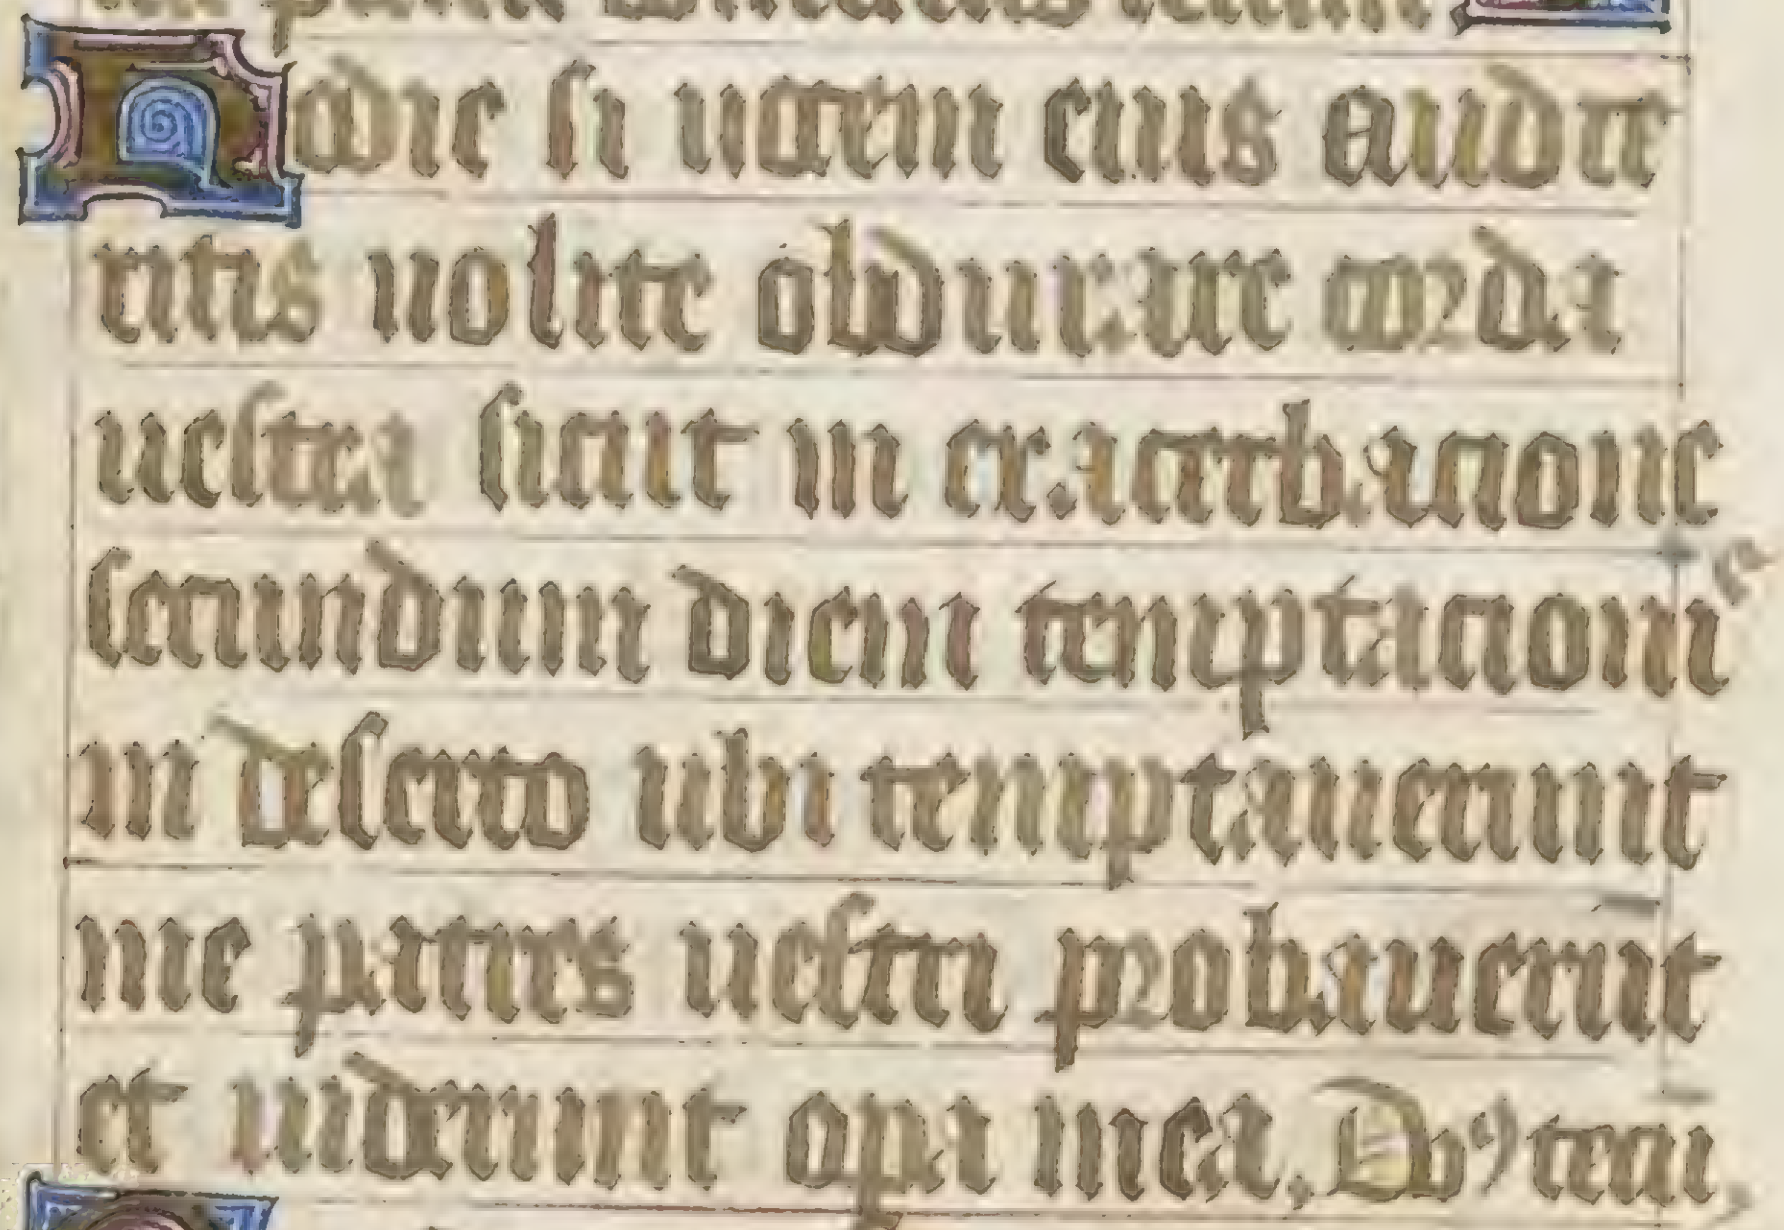 Hodie si uocem eius audie
ritis nolite obdurare corda
uestra sicut in exacerbacione
secundum diem temptacionis
in deserto ubi temptauerunt
me patres uestri probauerūt
et uiderunt opa mea, Dn̄s tecū,